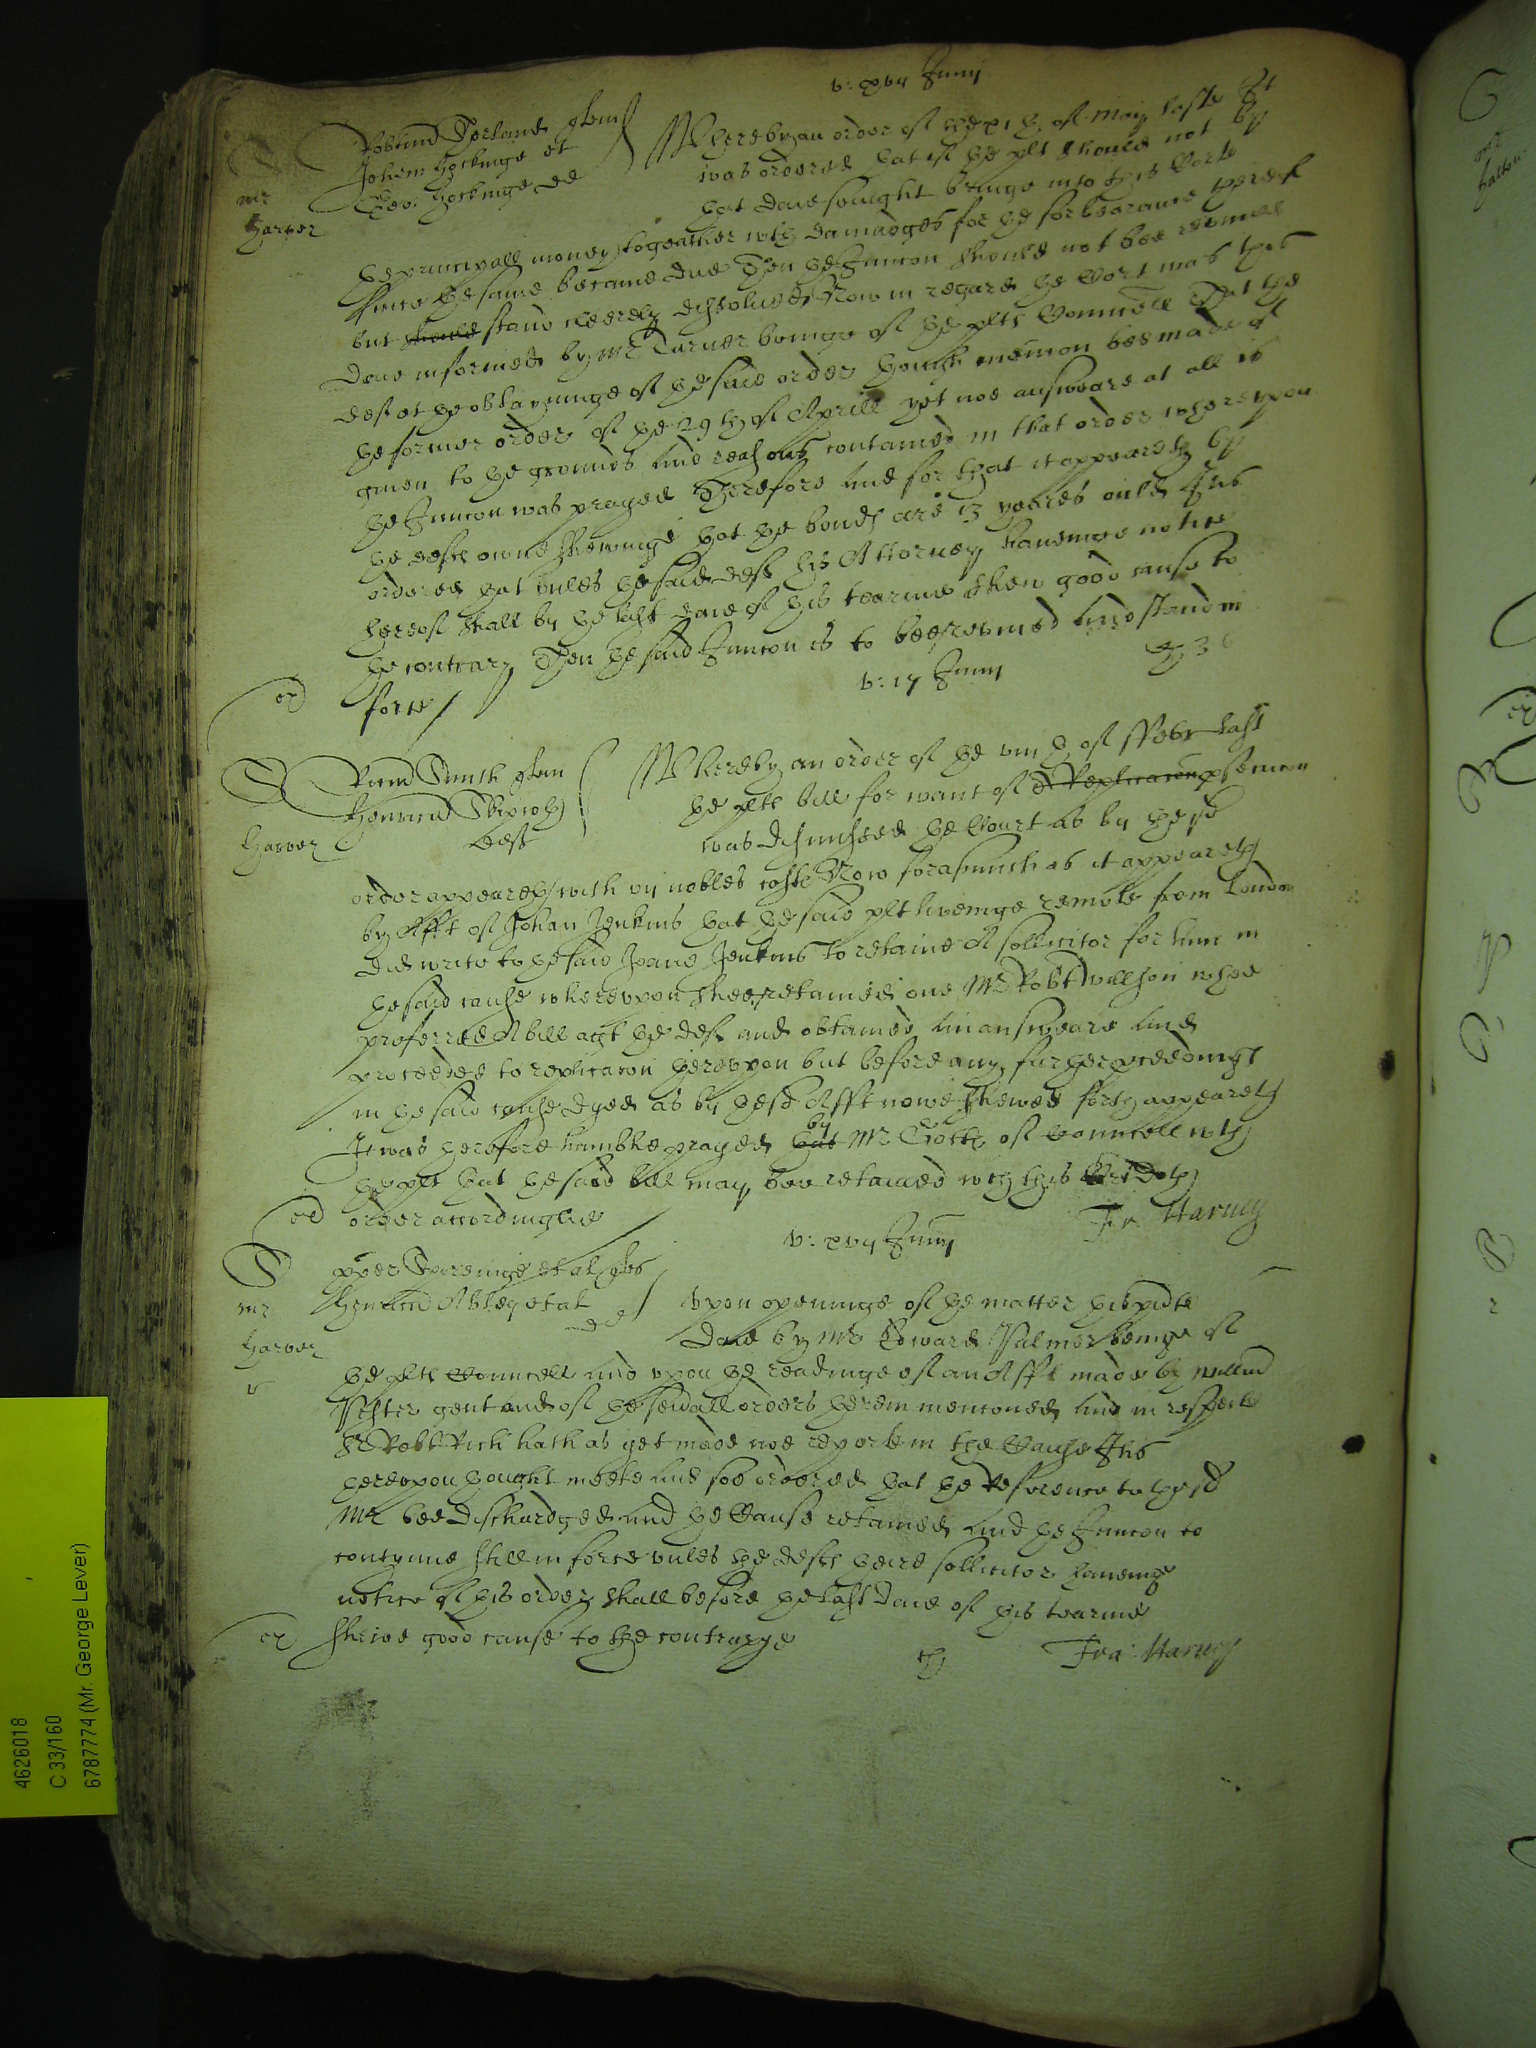 v: xvij Junij
Robtum Sorland quer
Johem Hockinge et
Geo: Hockinge def
mr
Harver
Whereby an order of the xith of May laste It
was ordered that if the plt should not by
that daie senight bringe into this Corte
the principall money togeather wth damadges for the forbearance thereof
since the same became due Then the Juncon should not bee revived
but should stand cleerely dissolved Now in regard the Cort was this
daie informed by Mr Turner beinge of the plts Councell That the
deft at the obtayninge of the said order though mencon bee made of
the former order of the 29th of Aprill yet noe answeare at all is
given to the grounds and reasons contained in that order whereupon
the Juncon was prayed Therefore and for that it appeareth by
the defts owne shewinge that the bonds are 13 yeares ould It is
ordered that unles the said deft his Attorney haveinge notice
hereof shall by the last daie of this tearme shew good cause to
the contrary Then the said Juncon is to bee revived and stand in
force
ex
v: 17 Junij
Smith quer
Henricu Skipwith
deft
Harver
Whereby an order of the viijth of Febr last
the plts bill for want of a Replicacon psecucon
was dismissed the Court as by the sd
order appeareth with vij nobles costs Now forasmuch as it appeareth
by Afft of Johan Jenkins that the said plt liveinge remote from London
did write to the said Joane Jenkins to retaine A sollicitor for him in
the said cause whereupon shee retained one Mr Robt Willson whoe
proferred A bill agt the deft and obtained an answeare and
proceeded to replicacon thereupon but before any further pceedings
in the said cause dyed as by the sd Afft nowe shewed forth appeareth
It was therefore humblie prayed that by Mr of Councell wth
the plt that the said bill may bee retained wch this Cort doth
order accordinglie
ex
Fr. Harvey
v: xvij Junij
et al ques
Henricu Astley et al
def
mr
Harver
v
Upon openinge of the matter this pnte
daie by Mr Edward Palmer beinge of
the plts Councell and upon the readinge of an Afft made by Willm
gent and of the sevall orders therein mencoened and in respect
Sr Robt Rich hath as yet made noe reporte in the Cause It is
thereupon thought meete and soe ordered that the Reference to the sd
Mr bee dischardged and the Cause retained and the Juncon to
contynue still in force unles the defts theire sollicitor haveinge
notice of this order shall before the last daie of this tearme
shewe good cause to the contrarye
ex
Fra: Harvey
4626018
C 33/160
6787774 (Mr. George Lever)